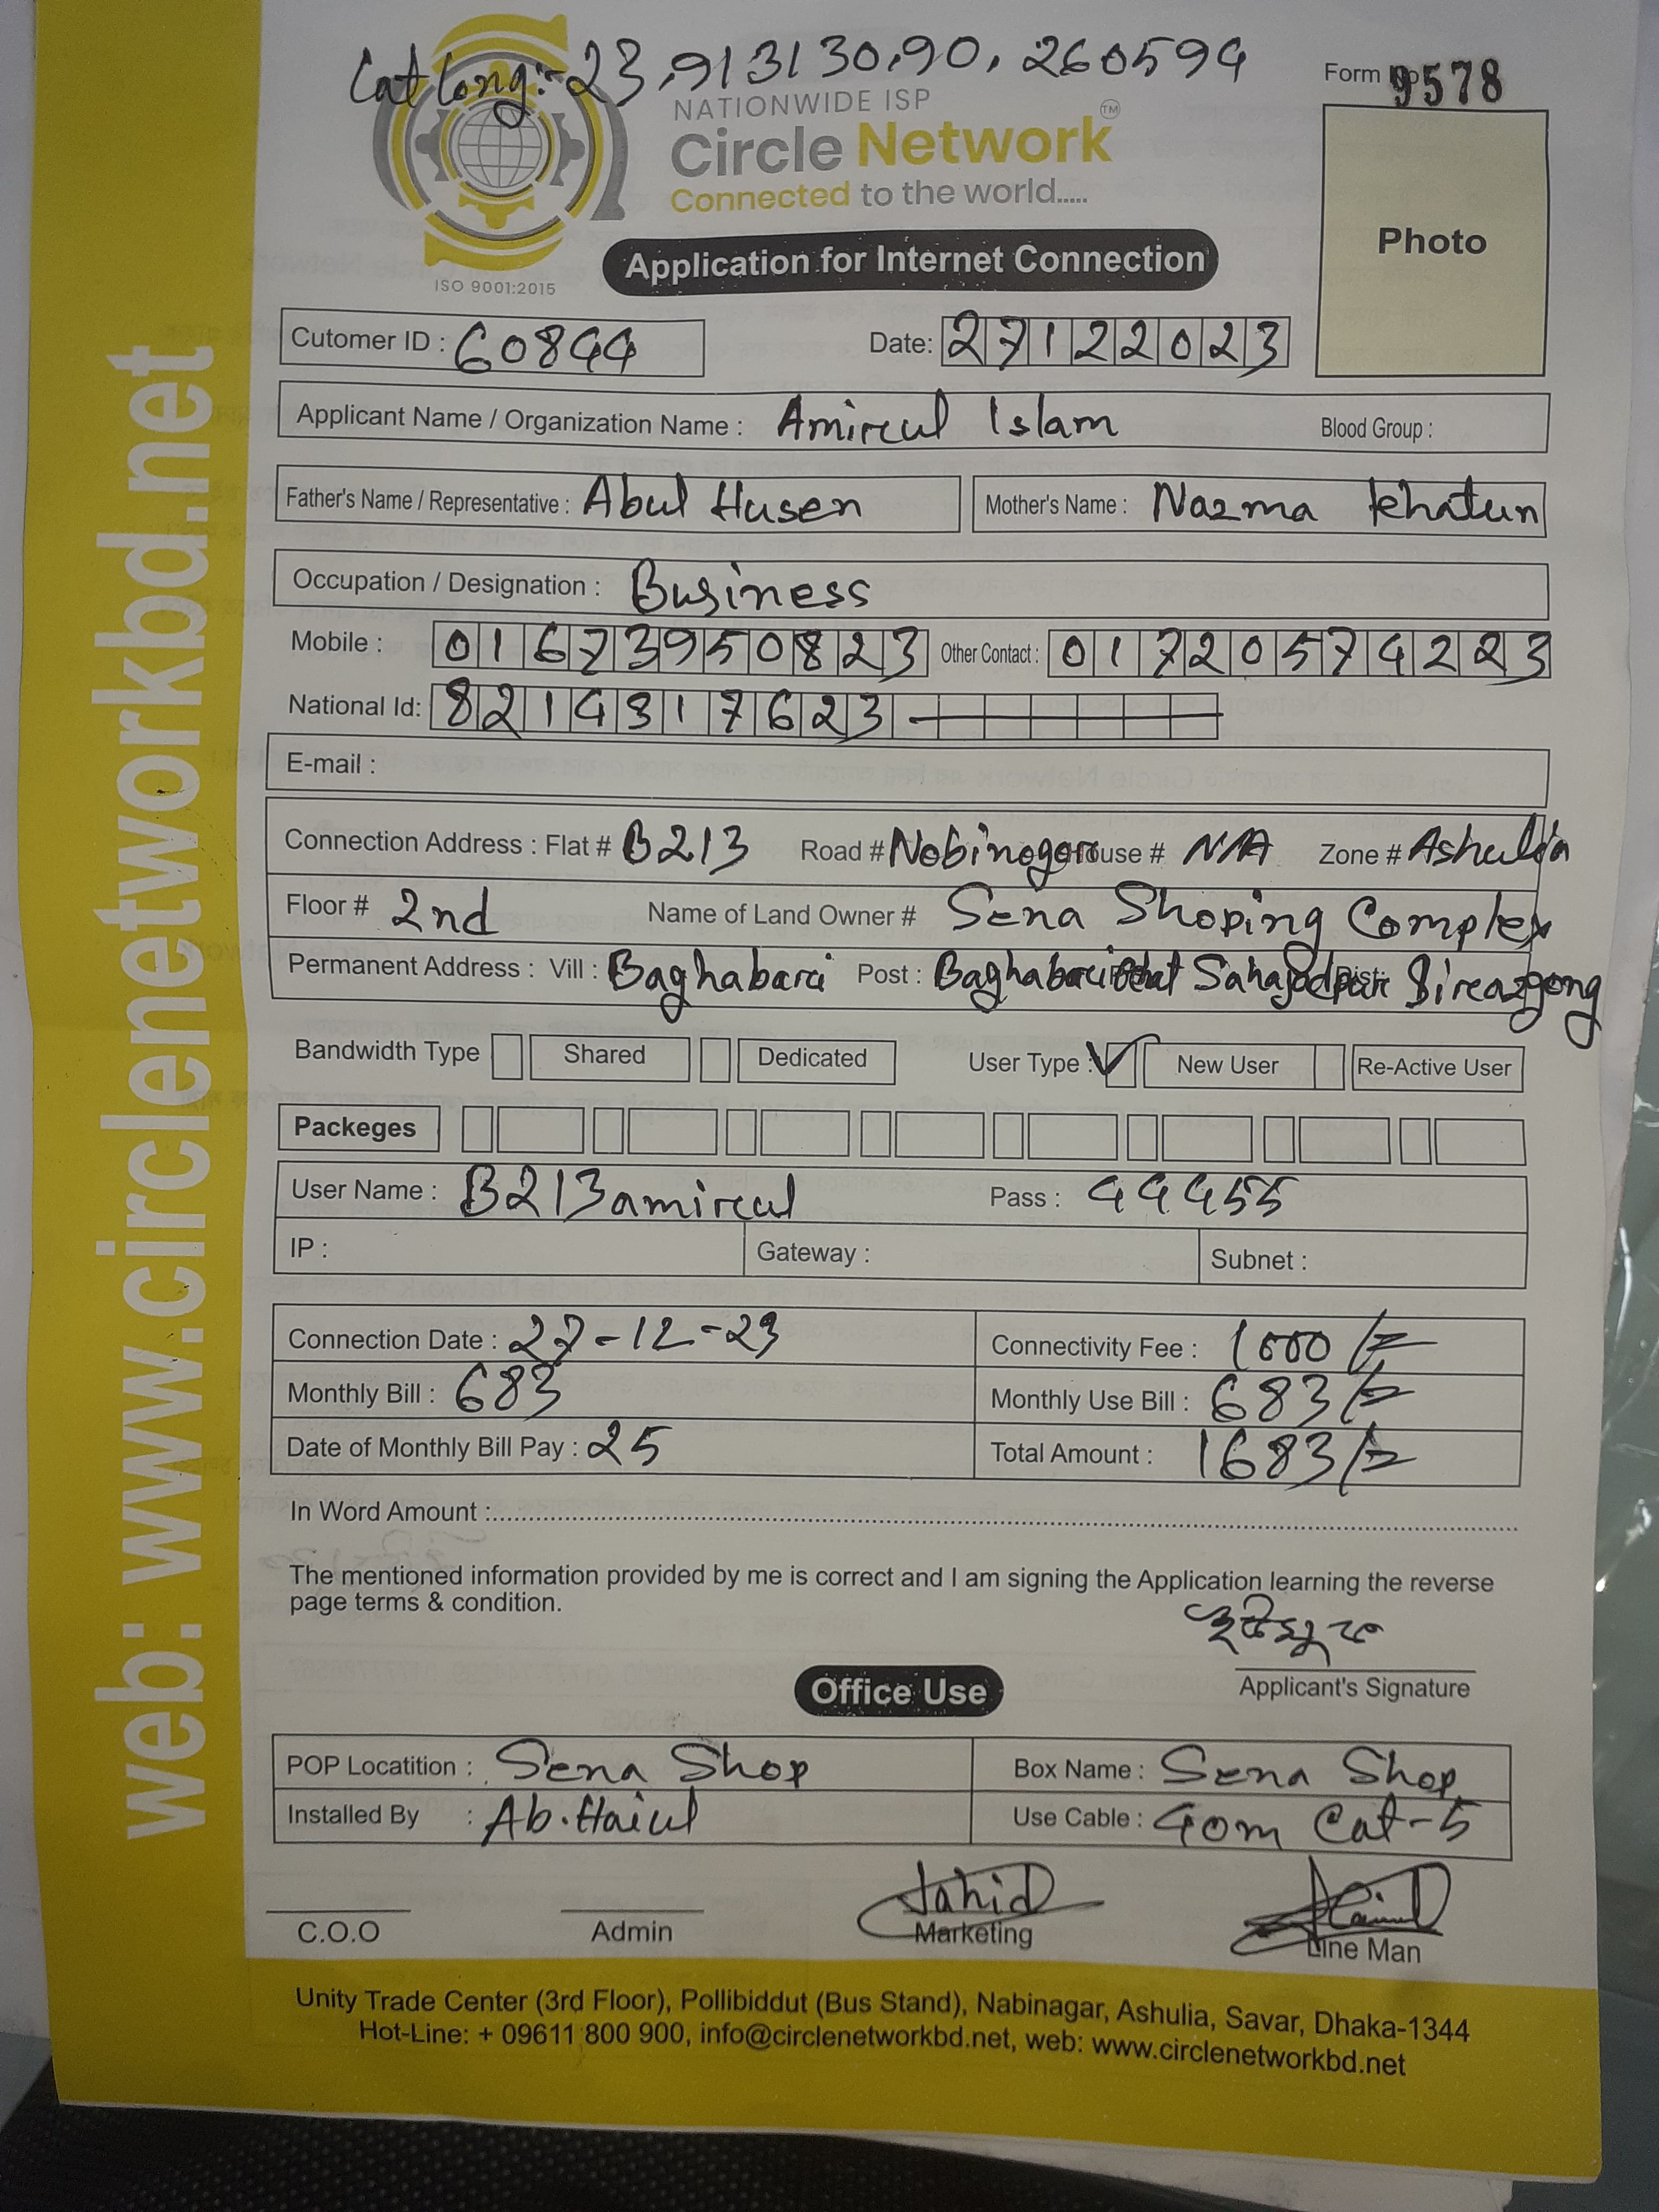 Lat Long:- 23.913130,90.260594
Form No 9578
NATIONWIDE ISP
Circle Network TM
Connected to the world.....
ISO 9001:2015
Application for Internet Connection
Photo
Cutomer ID : 60844
Date: 27122023
Applicant Name / Organization Name : Amirul Islam Blood Group :
Father's Name / Representative : Abul Husen Mother's Name : Nazma Khatun
Occupation / Designation : Business
Mobile : 01673950823 Other Contact : 01720574223
National Id: 8214317623
E-mail :
Connection Address : Flat # B213 Road # Nobinogor House # N/A Zone # Ashulia
Floor # 2nd Name of Land Owner # Sena Shoping Complex
Permanent Address : Vill : Baghabari Post : Baghabari Sahajadpur Dist: Sirazgong
Bandwidth Type Shared Dedicated User Type : New User Re-Active User
Packeges
User Name : B213amirul Pass : 44455
IP : Gateway : Subnet :
Connection Date : 27-12-23 Connectivity Fee : 1000/=
Monthly Bill : 683 Monthly Use Bill : 683/=
Date of Monthly Bill Pay : 25 Total Amount : 1683/=
In Word Amount :
The mentioned information provided by me is correct and I am signing the Application learning the reverse
page terms & condition.
Applicant's Signature
Office Use
POP Locatition : Sena Shop Box Name : Sena Shop
Installed By : Ab. Hairul Use Cable : 40m Cat-5
Jahid
C.O.O Admin Marketing Line Man
Unity Trade Center (3rd Floor), Pollibiddut (Bus Stand), Nabinagar, Ashulia, Savar, Dhaka-1344
Hot-Line: + 09611 800 900, info@circlenetworkbd.net, web: www.circlenetworkbd.net
web: www.circlenetworkbd.net